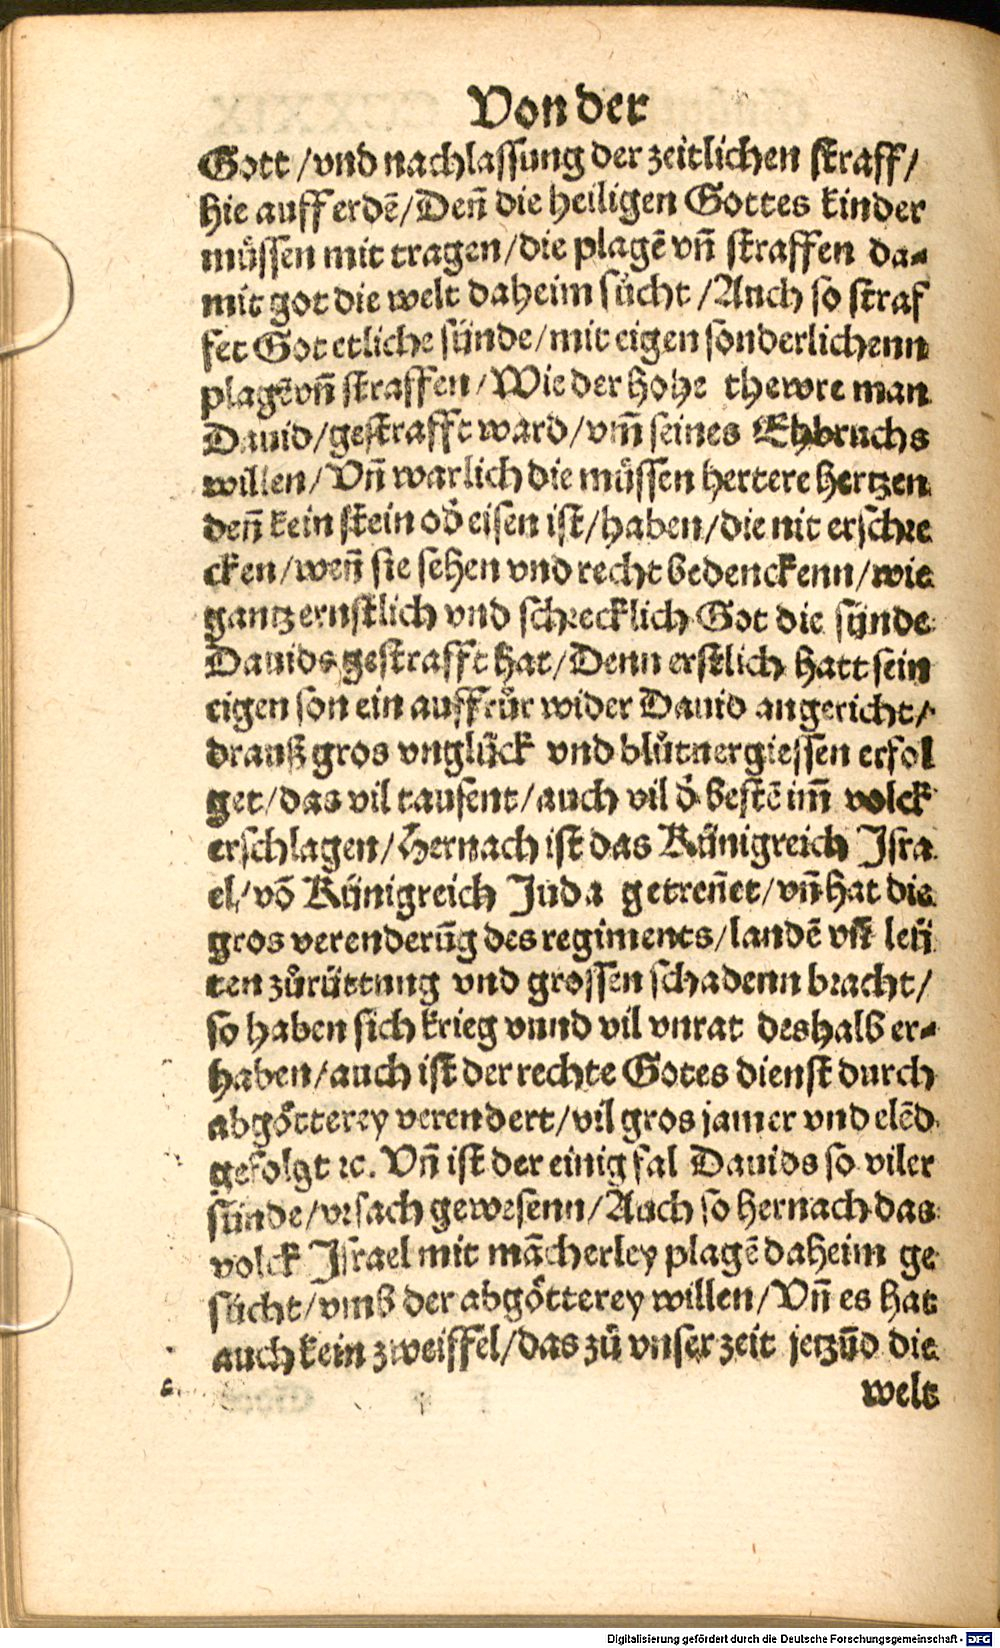 Von der
Gott /vnd nachlassung der zeitlichen straff/
hie auff erdē/Deñ die heiligen Gottes kinder
müssen mit tragen/die plagē vñ straffen da-
mit got die welt daheim sücht /Auch so straf
fet Got etliche sünde/mit eigen sonderlichenn
plagē vñ straffen/Wie der hohe thewre man
Dauid/gestrafft ward/vm̄ seines Ehbruchs
willen/Vñ warlich die müssen hertere hertzen
deñ kein stein oď eisen ist/haben/die nit erschre
cken/weñ sie sehen vnd recht bedenckenn/wie
gantz ernstlich vnd schrecklich Got die sünde
Dauids gestrafft hat/Denn erstlich hatt sein
eigen son ein auffrůr wider Dauid angericht/
drauß gros vnglück vnd blůtuergiessen erfol
get/das vil tausent/auch vil ď bestē im̄ volck
erschlagen/Hernach ist das Künigreich Isra
el/vō Künigreich Juda getreñet/vñ hat die
gros verenderūg des regiments/landē vñ leü
ten zůrüttung vnd grossen schadenn bracht/
so haben sich krieg vnnd vil vnrat deshalb er-
haben/auch ist der rechte Gotes dienst durch
abgötterey verendert/vil gros jamer vnd elēd
gefolgt ꝛc. Vñ ist der einig fal Dauids so viler
sünde/vrsach gewesenn/Auch so hernach das
volck Israel mit mācherley plagē daheim ge
sücht/vmb der abgötterey willen/Vñ es hat
auch kein zweiffel/das zů vnser zeit jetzūd die
welt
Digitalisierung gefördert durch die Deutsche Forschungsgemeinschaft - DFG